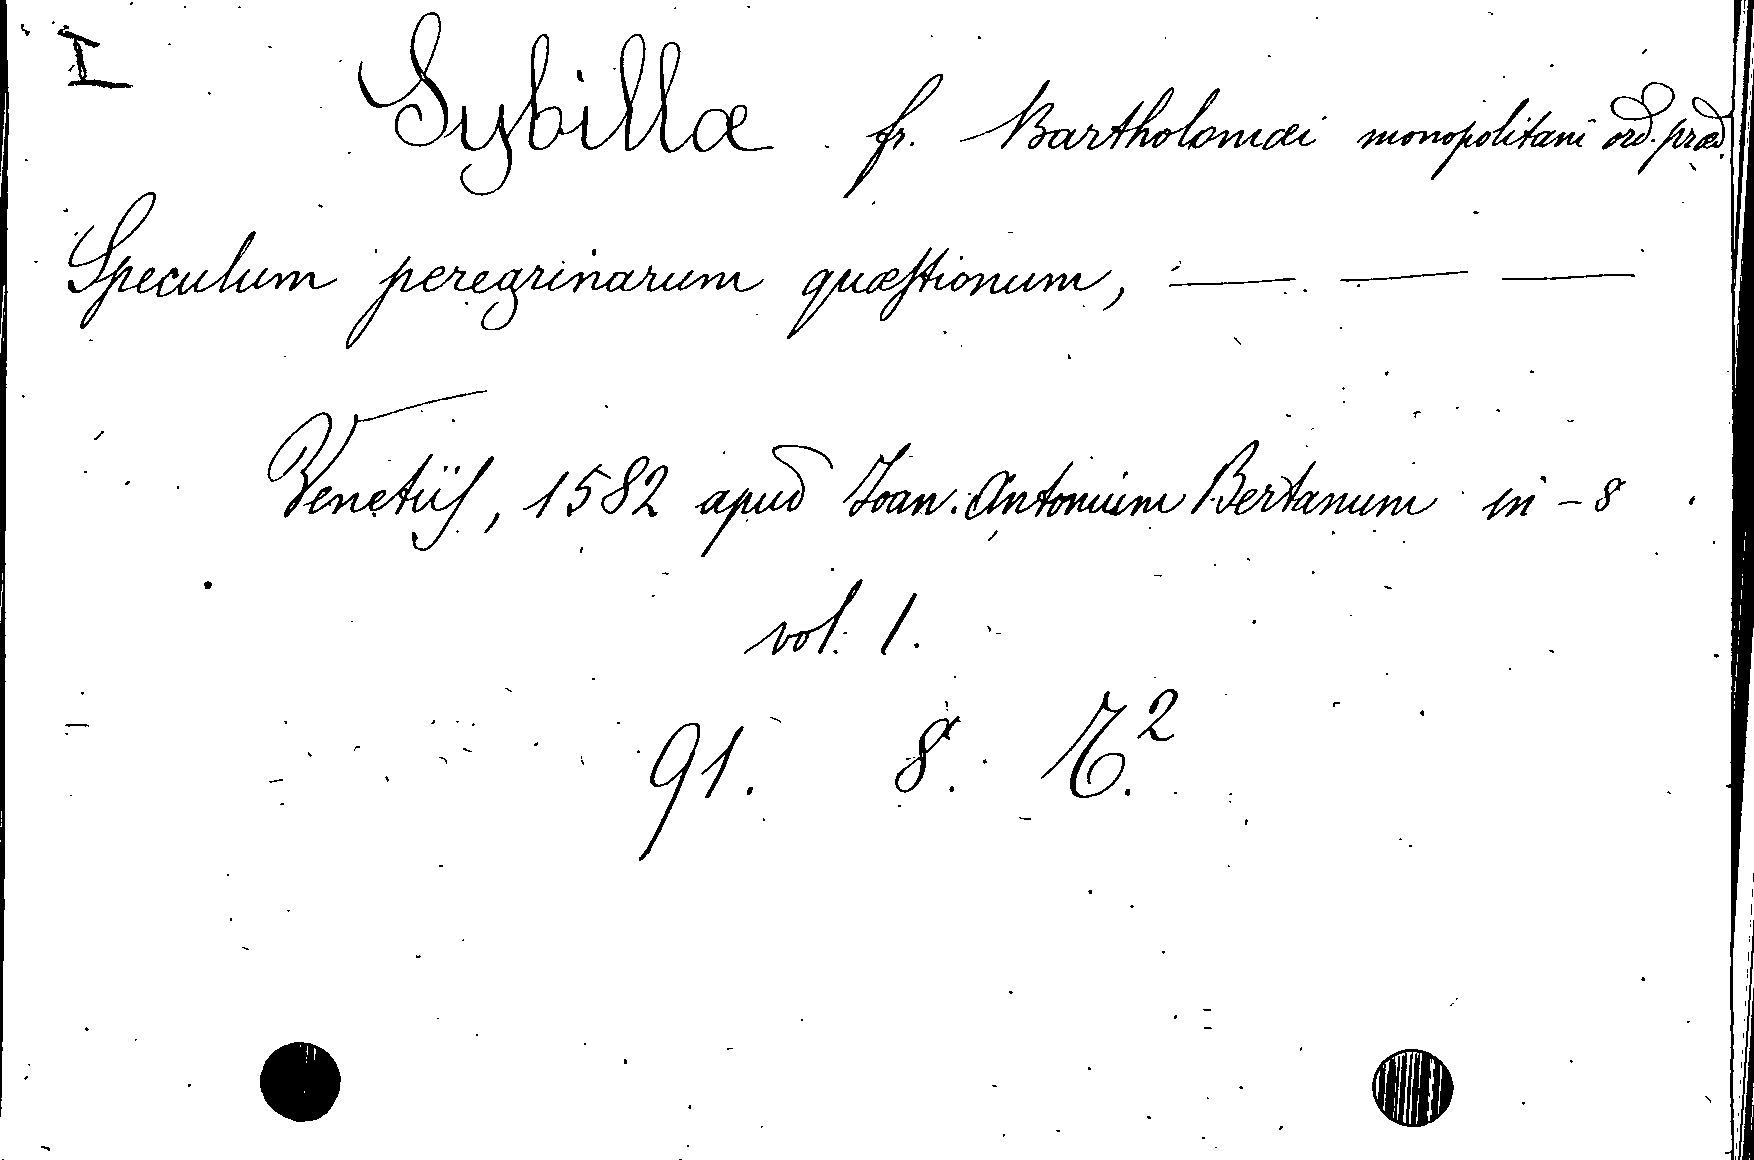 I Sybillæ fr. Bartholomæi monopolitani ord. præd.
Speculum peregrinarum quæstionum, — — —
Venetiis, 1582 apud Joan. Antonium Bertanum in-8
vol. 1.
91. 8.